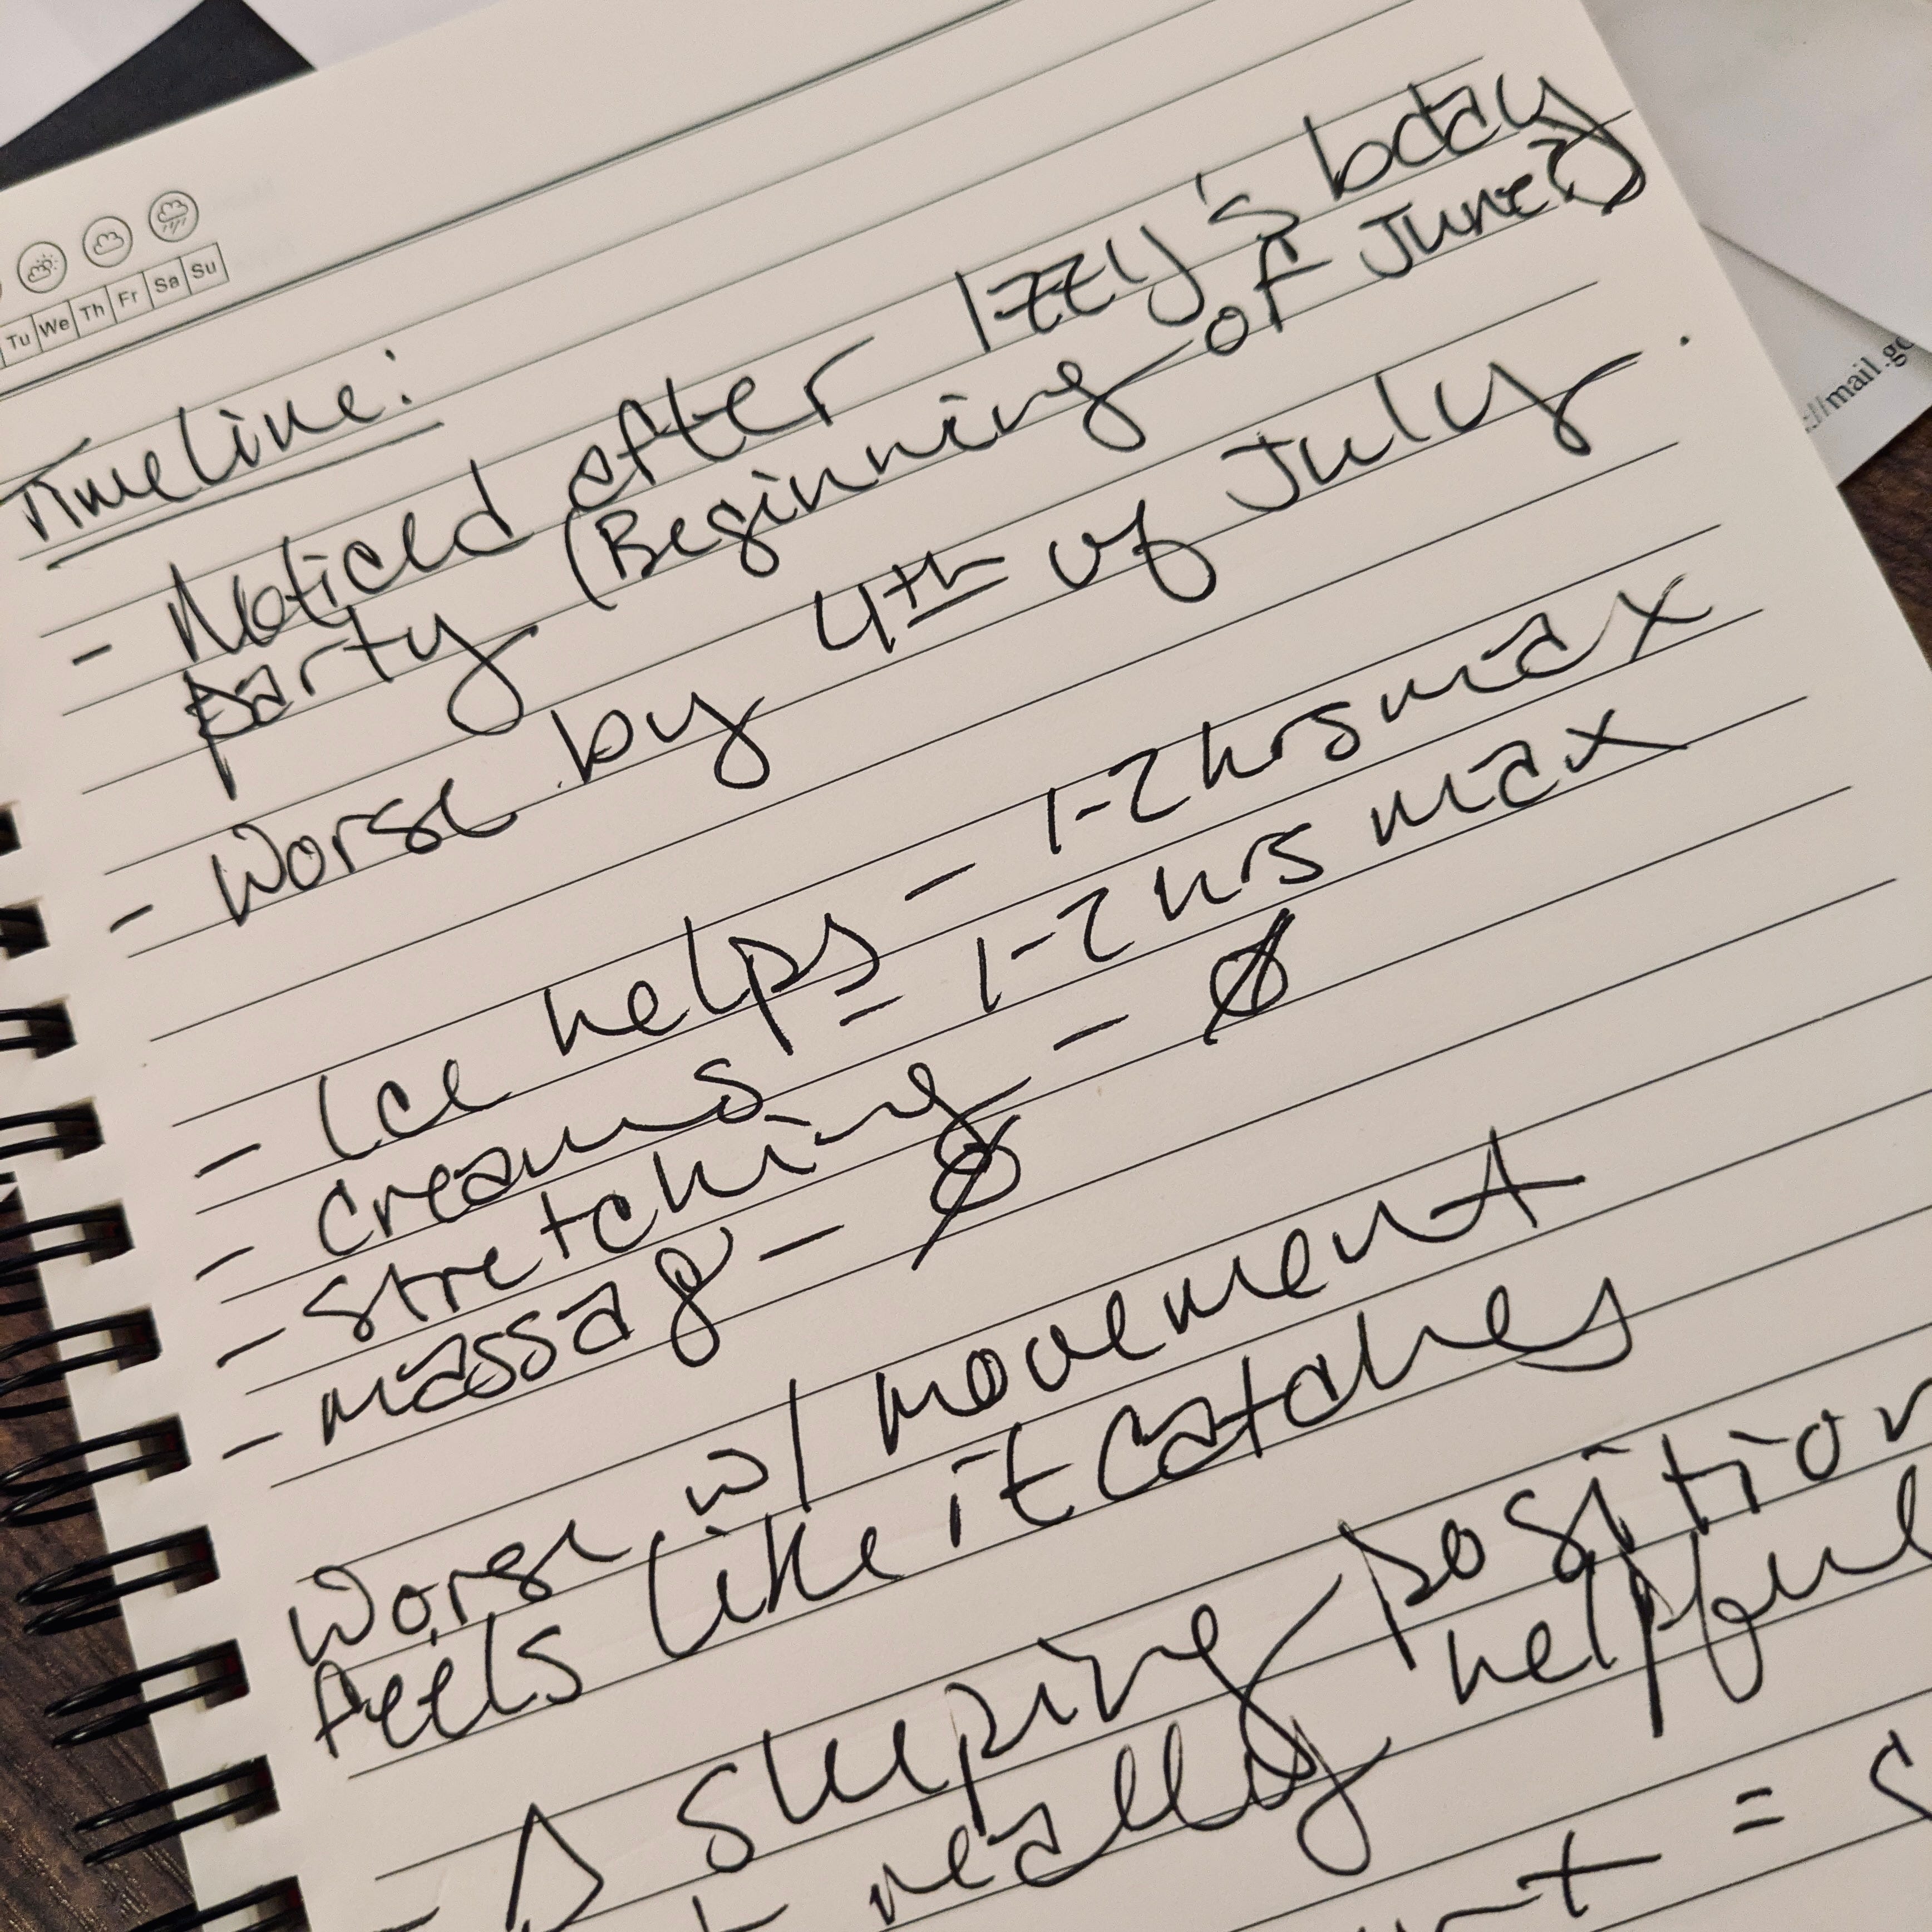 Tu We Th Fr Sa Su
Timeline:
- Noticed after Izzy's bday
party (Beginning of June)
- Worse by 4th of July.
- Ice helps - 1-2 hrs max
- Creams - 1-2 hrs max
- Stretching - Ø
- massage - Ø
Worse w/ movement
feels like it catches
- Δ sleeping position
really helpful
=
://mail.go